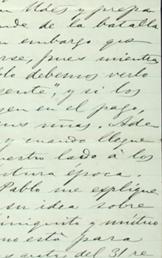 Uldes y prepa
nde de la batalla
n embargo que
rse, pues mientra
ólo debemos verlo
ente", y si los
en en el pago,
us uñas. Ade
y cuando llegue
estro lado á los
tura época.
Pablo me explique
su idea sobre
iniquito y mútuo
está para
antes del 31 re